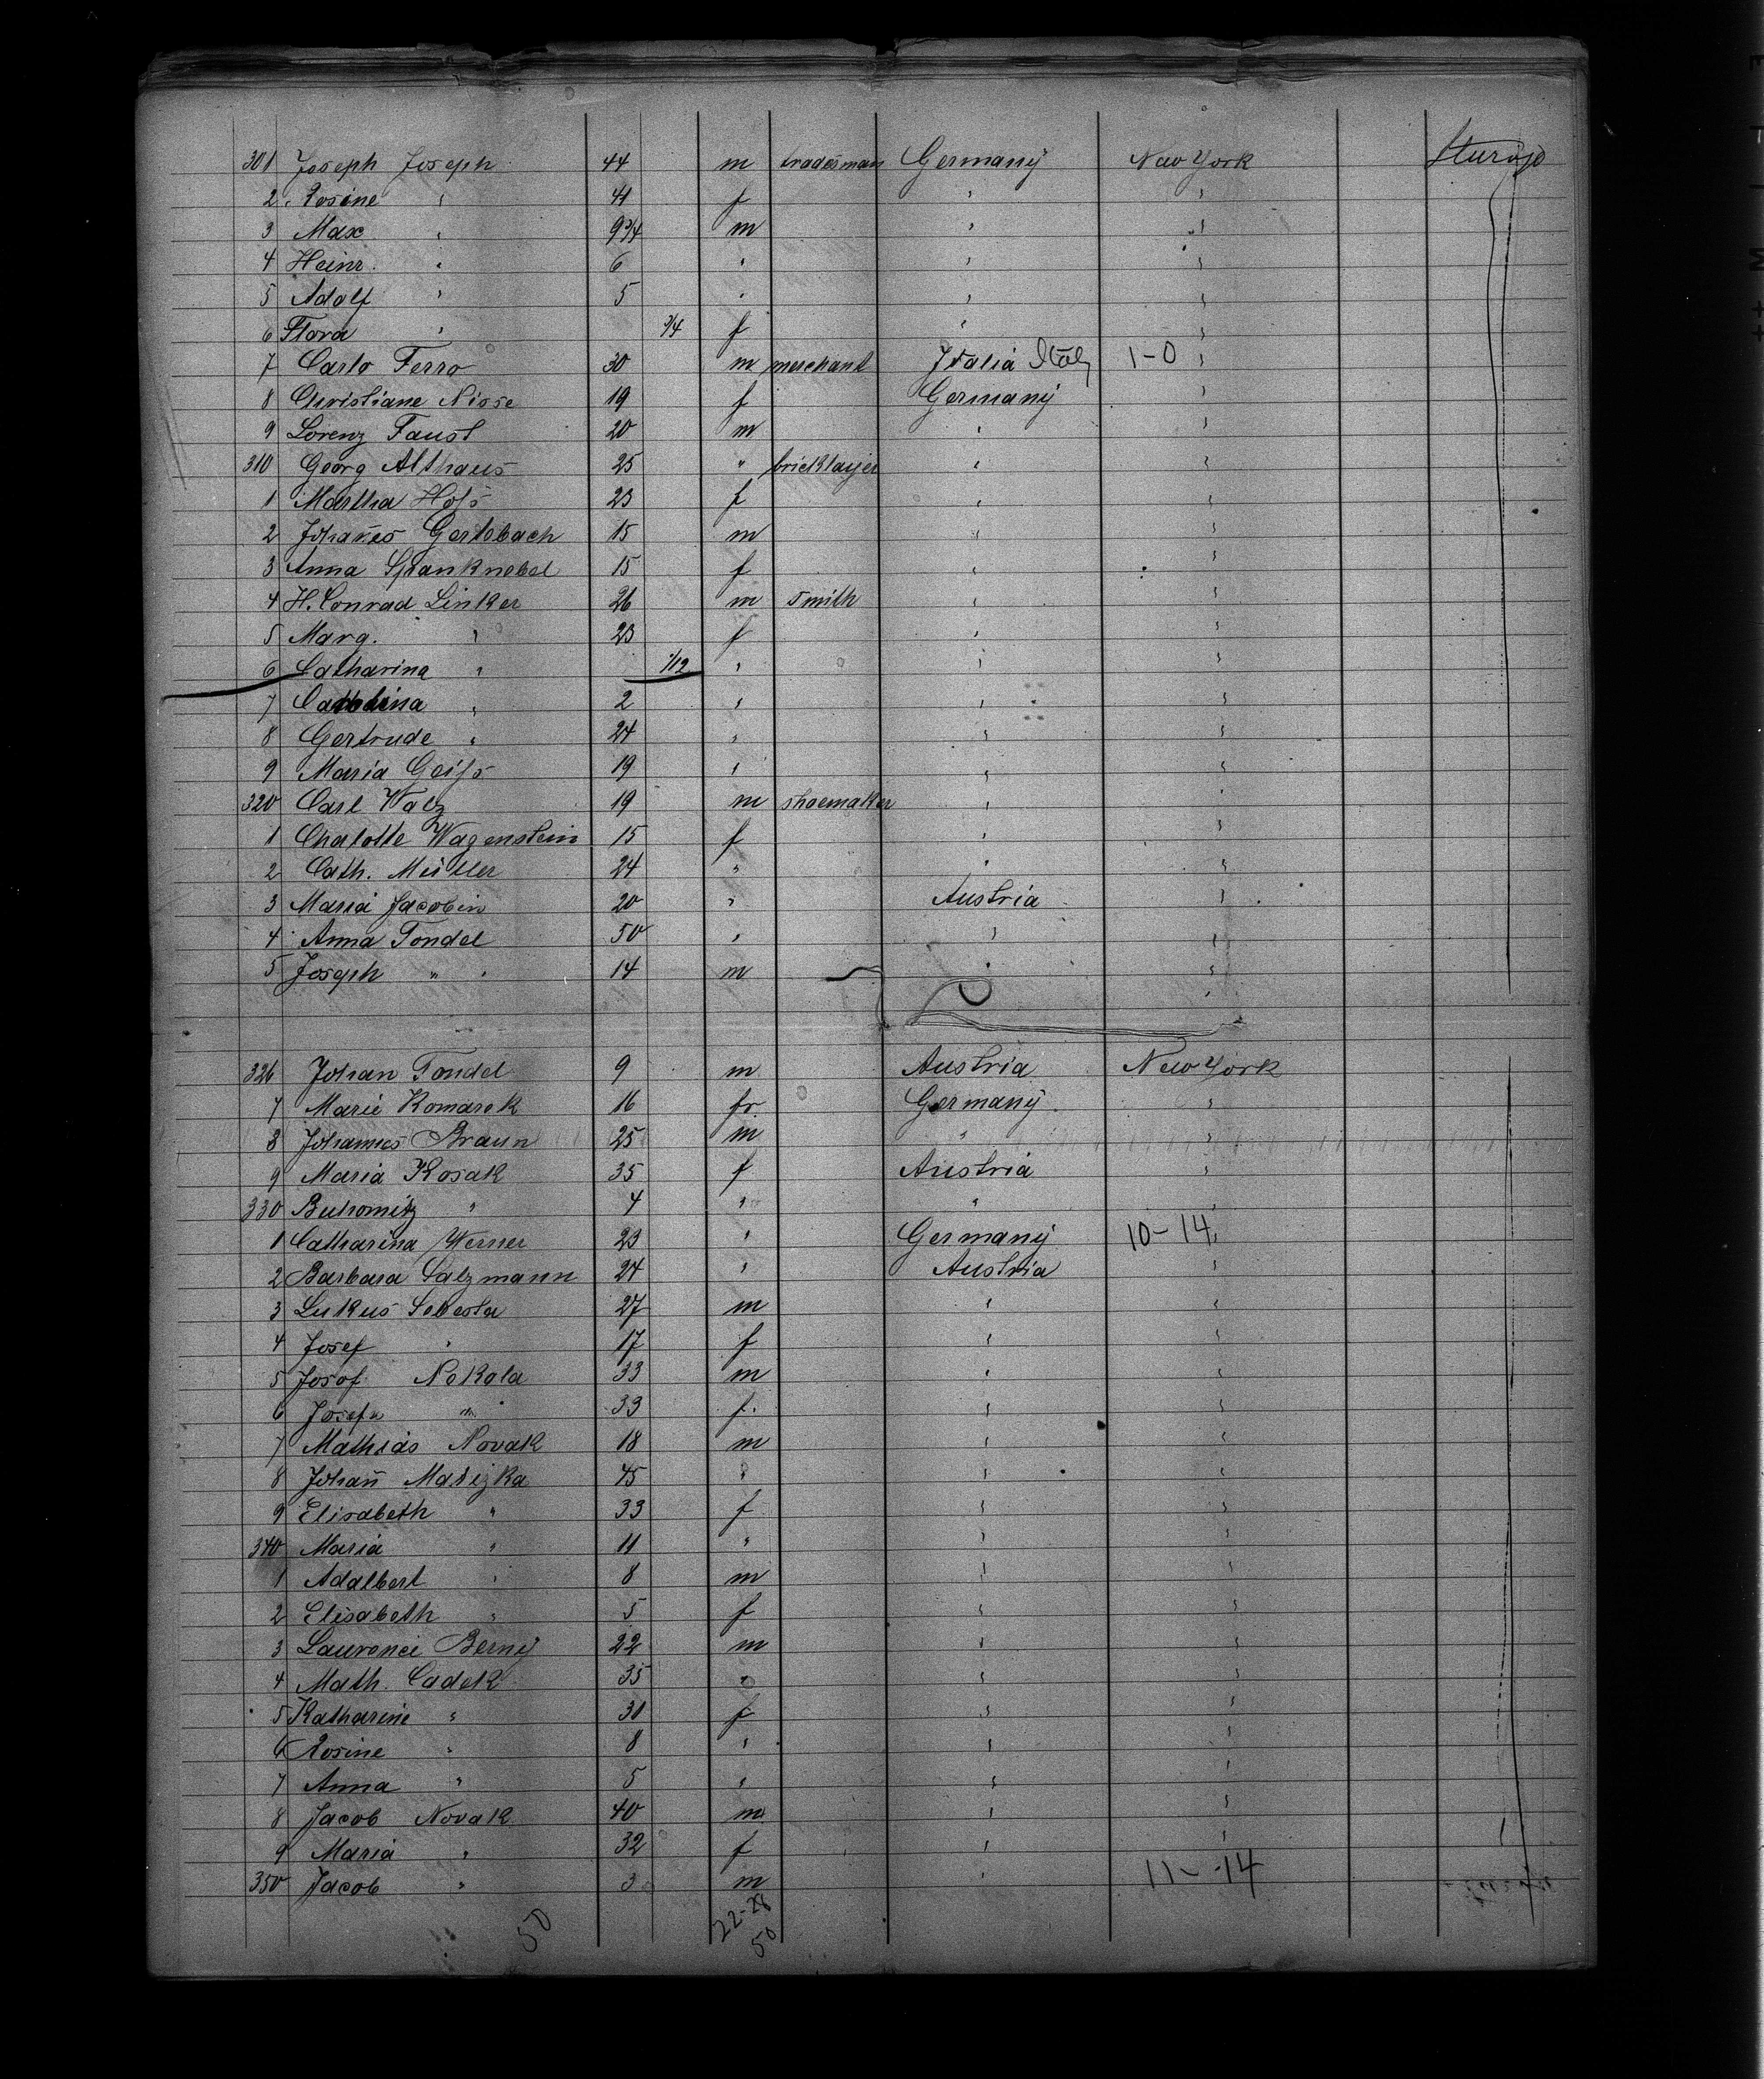 301 Joseph Joseph 44 m tradesman Germany New York
2 Rosine " 41 f " "
3 Max " 9 3/4 m " "
4 Heinr. " 6 " " "
5 Adolf " 5 " " "
6 Flora " 3/4 f " "
7 Carlo Ferro 30 m merchant Italia Italy 1-0 "
8 Christiane Nisse 19 f Germany "
9 Lorenz Faust 20 m " "
310 Georg Althaus 25 " bricklayer " "
1 Martha 23 f " "
2 Johañes Gerlebach 15 m " "
3 Anna Spanknebel 15 f " "
4 H. Conrad Linker 26 m smith " "
5 Marg. " 23 f " "
6 Catharina " 1/12 " " "
7 " 2 " " "
8 Gertrude " 24 " " "
9 Maria Geiss 19 " " "
320 Carl Walz 19 m shoemaker " "
1 Chalotte Wagenstein 15 f " "
2 Cath. Müller 24 " " "
3 Maria Jacobin 20 " Austria "
4 Anna Tondel 50 " " "
5 Joseph " 14 m " "
326 Johan Tondel 9 m Austria New York
7 Marie Komarek 16 f Germany "
8 Johannes Braun 25 m " "
9 Maria Kosak 35 f Austria "
330 " 4 " " "
1 Catharina Werner 23 " Germany 10-14 "
2 Barbara Salzmann 24 " Austria "
3 Lukus Sebesta 27 m " "
4 Josef " 17 f " "
5 Josof Nekola 33 m " "
6 Josefa " 33 f. " "
7 Mathias Novak 18 m " "
8 Johañ Masizka 45 " " "
9 Elisabeth " 33 f " "
340 Maria " 11 " " "
1 Adalbert " 8 m " "
2 Elisabeth " 5 f " "
3 Laurenci Berny 22 m " "
4 Math. Cadek 35 " " "
5 Katharine " 31 f " "
6 Rosine " 8 " " "
7 Anna " 5 " " "
8 Jacob Novak 40 m " "
9 Maria " 32 f " "
350 Jacob " 3 m " 11-14
50 22-28
50